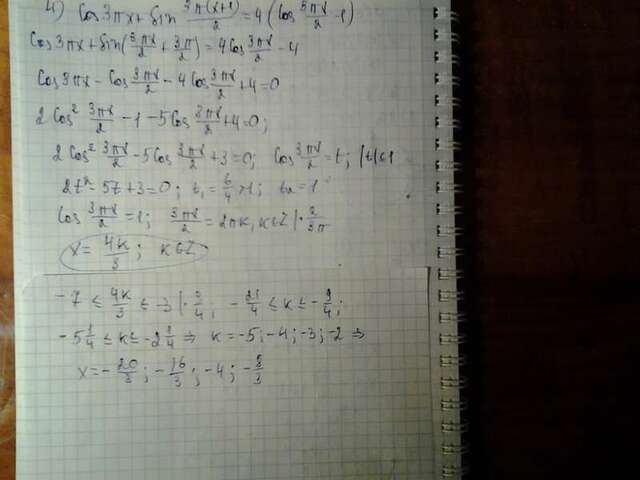 4) Cos3πx + Sin 3π(x+1)/2 = 4(Cos 3πx/2 - 1)
Cos3πx + Sin(3πx/2 + 3π/2) = 4Cos 3πx/2 - 4
Cos3πx - Cos 3πx/2 - 4Cos 3πx/2 + 4 = 0
2Cos² 3πx/2 - 1 - 5Cos 3πx/2 + 4 = 0;
2Cos² 3πx/2 - 5Cos 3πx/2 + 3 = 0; Cos 3πx/2 = t; |t|≤1
2t² - 5t + 3 = 0; t₁ = 6/4 >1; t₂ = 1
Cos 3πx/2 = 1; 3πx/2 = 2πk, k∈Z |· 2/3π
x = 4k/3; k∈Z.
-7 ≤ 4k/3 ≤ -3 |· 3/4; -21/4 ≤ k ≤ -9/4;
-5 1/4 ≤ k ≤ -2 1/4 ⇒ k = -5; -4; -3; -2 ⇒
x = -20/3; -16/3; -4; -8/3